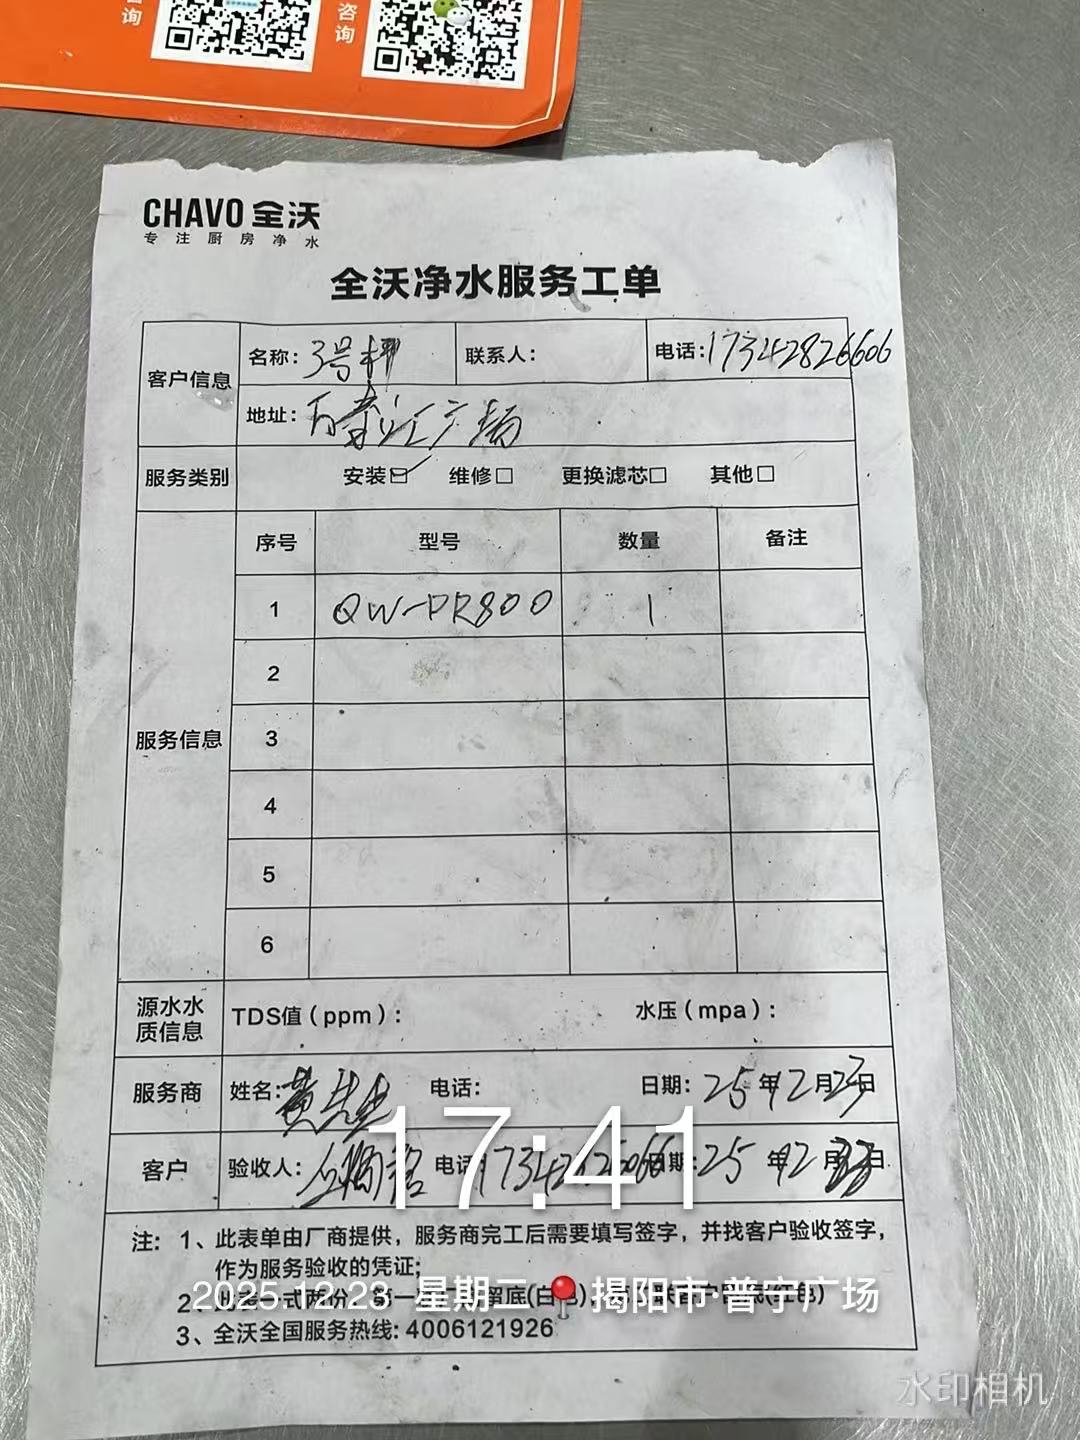 咨询
咨询
CHAVO 全沃
专注厨房净水
全沃净水服务工单
客户信息
名称: 3号
联系人:
电话: 17342826606
地址: 广场
服务类别
安装☑ 维修□ 更换滤芯□ 其他□
服务信息
序号 型号 数量 备注
1 QW-PR800 1
2
3
4
5
6
源水水质信息
TDS值(ppm): 水压(mpa):
服务商 姓名: 黄先生 电话: 日期: 25年12月23日
17:41
客户 验收人: 电话: 日期: 25年12月23日
注: 1、此表单由厂商提供，服务商完工后需要填写签字，并找客户验收签字，
作为服务验收的凭证;
2025.12.23 星期二 揭阳市·普宁广场
2、此表一式两份，第一 留底(白色), (红色)
3、全沃全国服务热线: 4006121926
水印相机